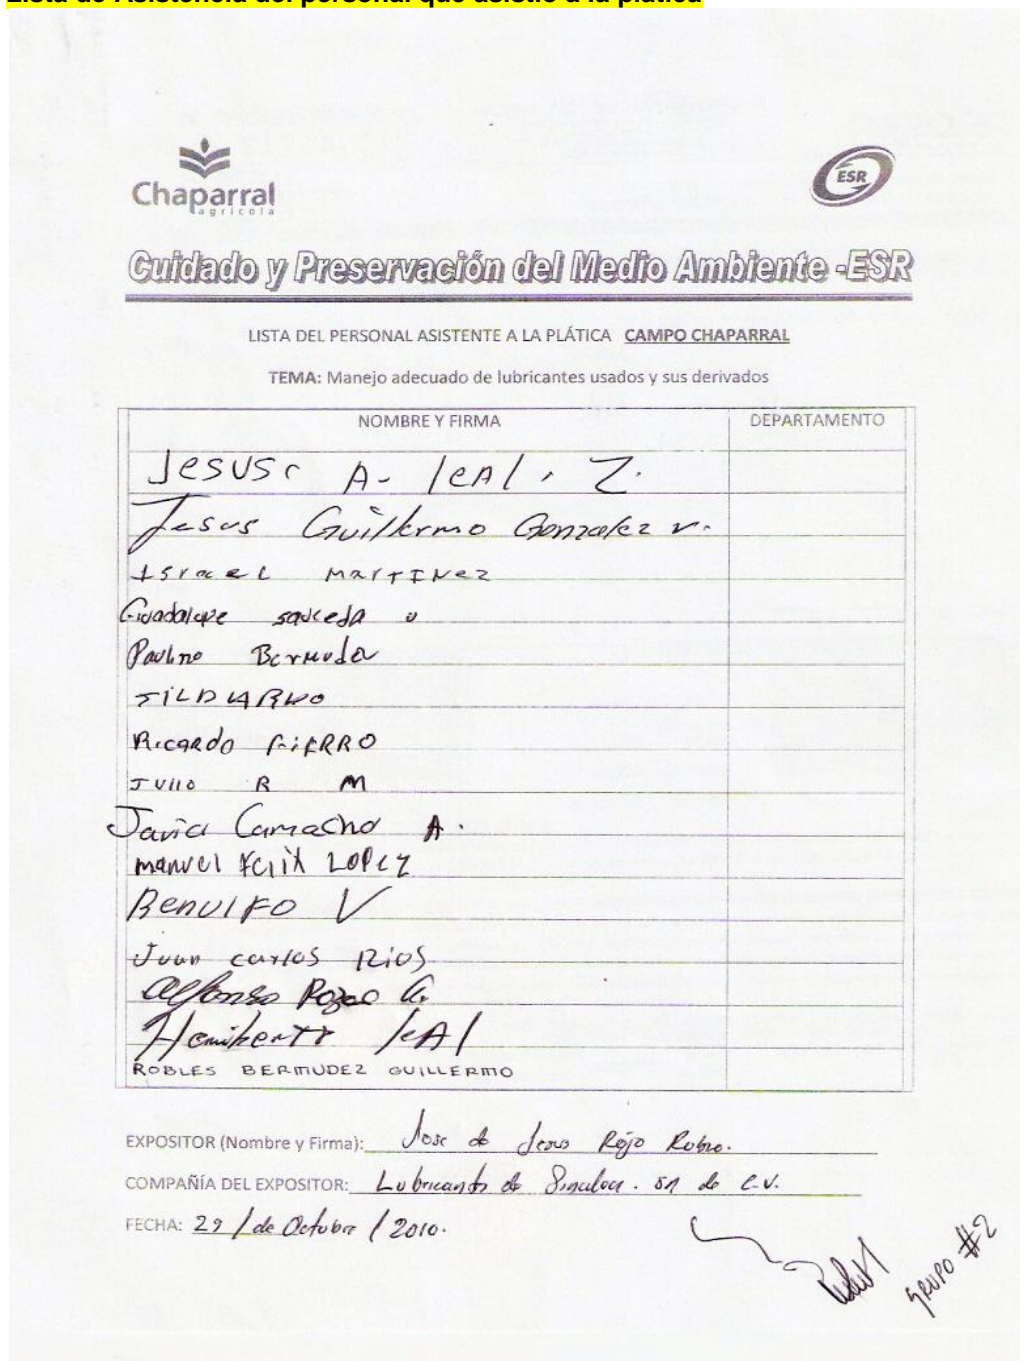 Lista de Asistencia del personal que asistió a la plática
Chaparral
agrícola
ESR
Cuidado y Preservación del Medio Ambiente -ESR
LISTA DEL PERSONAL ASISTENTE A LA PLÁTICA CAMPO CHAPARRAL
TEMA: Manejo adecuado de lubricantes usados y sus derivados
NOMBRE Y FIRMA DEPARTAMENTO
Jesus A. leAl. Z.
Jesus Guillermo Gonzalez v.
Israel MarTINez
Guadalupe sauceda
Paulino Bermudez
Ricardo FiERRO
Julio R M
Javier Camacho A.
manuel Felix LOPez
RenulFo V
Juan carlos Rios
Alfonso G.
Heriberto leAl
ROBLES BERMUDEZ GUILLERMO
EXPOSITOR (Nombre y Firma): Jose de Jesus Rojo Rubio.
COMPAÑÍA DEL EXPOSITOR: Lubricantes de Sinaloa. SA de C.V.
FECHA: 29 / de Octubre / 2010.
GRUPO #2